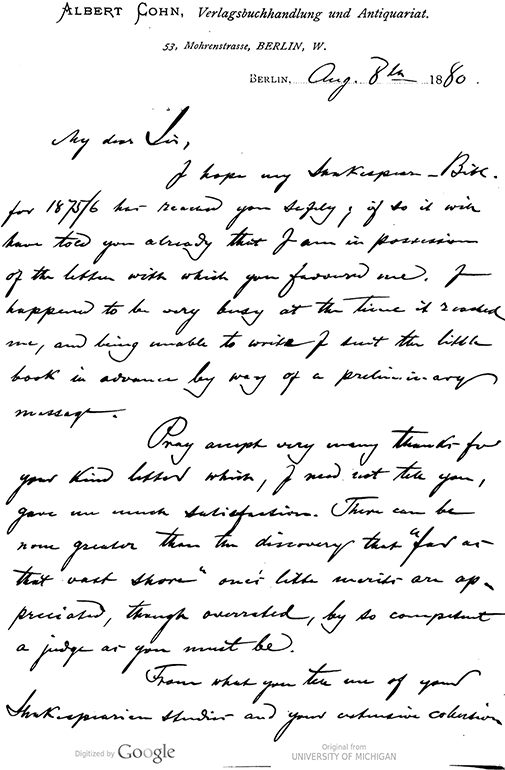 ALBERT COHN, Verlagsbuchhandlung und Antiquariat.
53, Mohrenstrasse, BERLIN, W.
BERLIN, Aug. 8th 1880.
My dear Sir,
I hope my Shakespeare-Bibl.
for 1875/6 has reached you safely; if so it will
have told you already that I am in possession
of the letter with which you favoured me. I
happened to be very busy at the time it reached
me, and being unable to write I sent the little
book in advance by way of a preliminary
message.
Pray accept very many thanks for
your kind letter which, I need not tell you,
gave me much satisfaction. There can be
none greater than the discovery that "far as
that vast shore" one's little merits are ap-
preciated, though overrated, by so competent
a judge as you must be.
From what you tell me of your
Shakespearian studies and your extensive collection
Digitized by Google
Original from
UNIVERSITY OF MICHIGAN